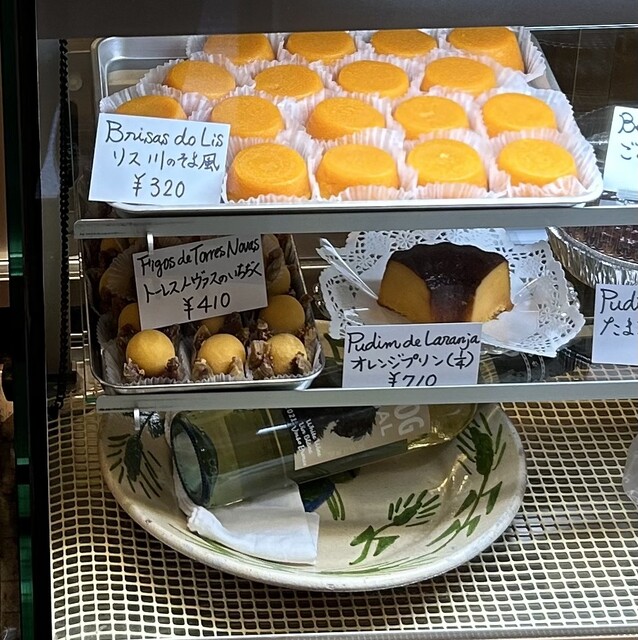 Brisas do Lis
リス川のそよ風
¥320
Figos de Torres Novas
トーレス・ノヴァスのいちぢく
¥410
Pudim de Laranja
オレンジプリン(1/4)
¥710
Pudi
たま
B
ご
2021
White Wine
Vin Blanc
OG
AL